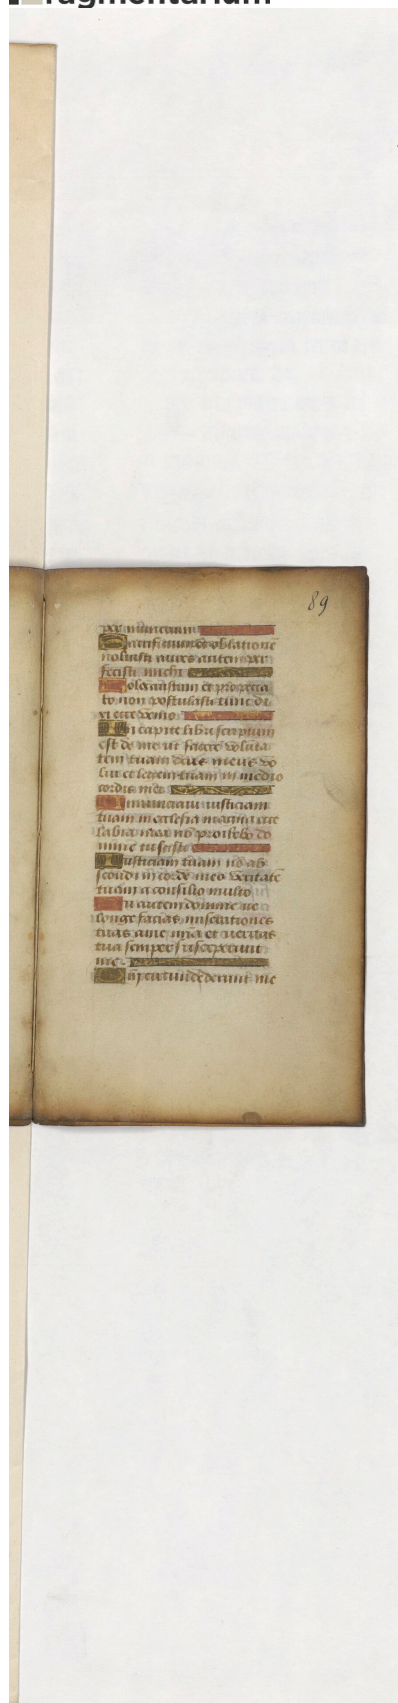 ragmentarium
89
per numerum
Sacrificium et oblatione
noluisti aures autem per
fecisti michi
olocaustum et pro pecca
to non postulasti tunc di
xi ecce venio
In capite libri scriptum
est de me ut facere volūta
tem tuam deus meus vo
lui et legem tuam in medio
cordis mei
nunciavi iusticiam
tuam in ecclesia magna ecce
labia mea nō prohibebo do
mine tu scisti
Iusticiam tuam nō ab
scondi in corde meo veritatē
tuam a consilio multo
Tu autem domine ne
longe facias miserationes
tuas a me mīa et veritas
tua semper susceperunt
me
circundederunt me